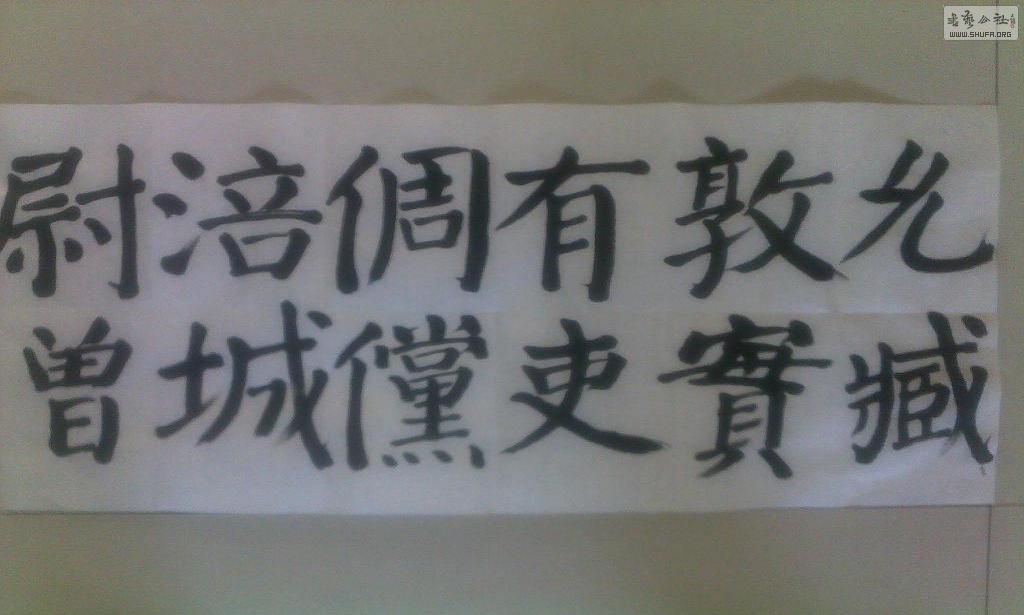 允臧
敦實
有吏
倜儻
涪城
尉曾
書藝公社
WWW.SHUFA.ORG